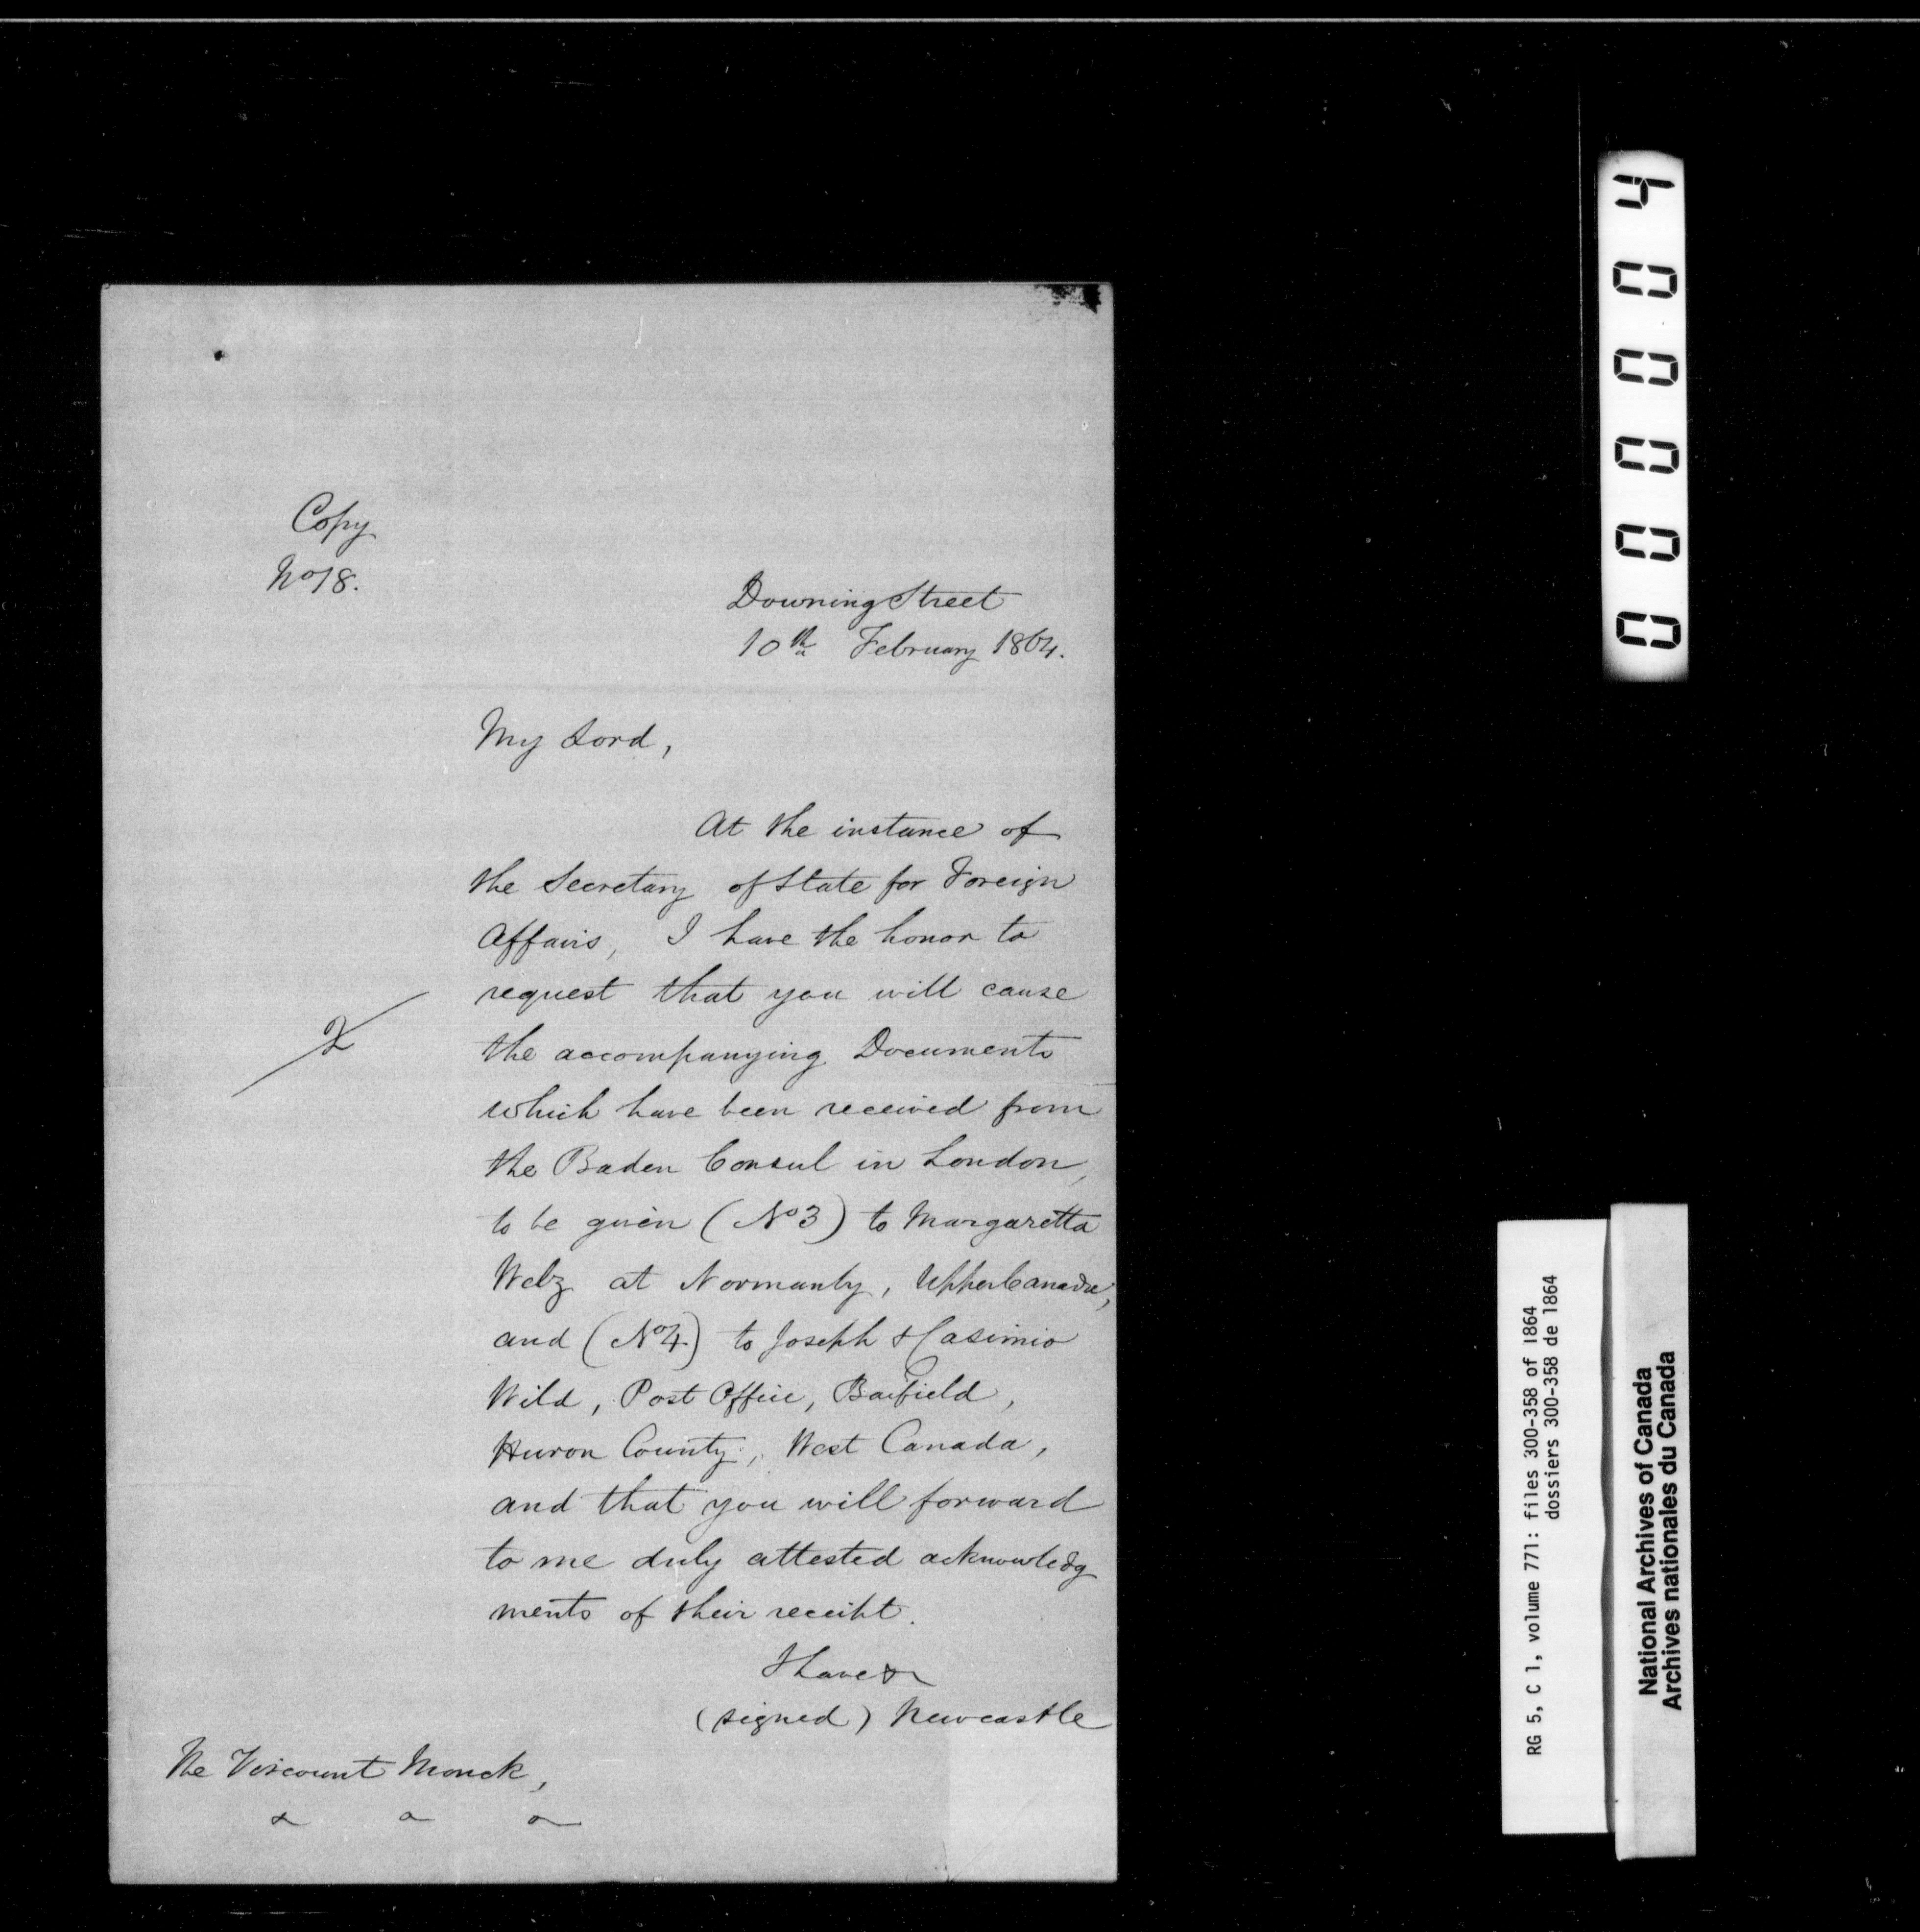 Copy
No 18.
Downing Street
10th February 1864.
My Lord,
At the instance of
the Secretary of State for Foreign
Affairs, I have the honor to
request that you will cause
2
the accompanying Documents
which have been received from
the Baden Consul in London,
to be given (No 3) to Margaretta
Welz at Normanby, Upper Canada,
and (No 4) to Joseph & Casimio
Wild, Post Office, Baifield,
Huron County, West Canada,
and that you will forward
to me duly attested acknowledg
ments of their receipt.
I have &
(signed) Newcastle
The Viscount Monck,
& & &
000004
RG 5, C 1, volume 771: files 300-358 of 1864
dossiers 300-358 de 1864
National Archives of Canada
Archives nationales du Canada